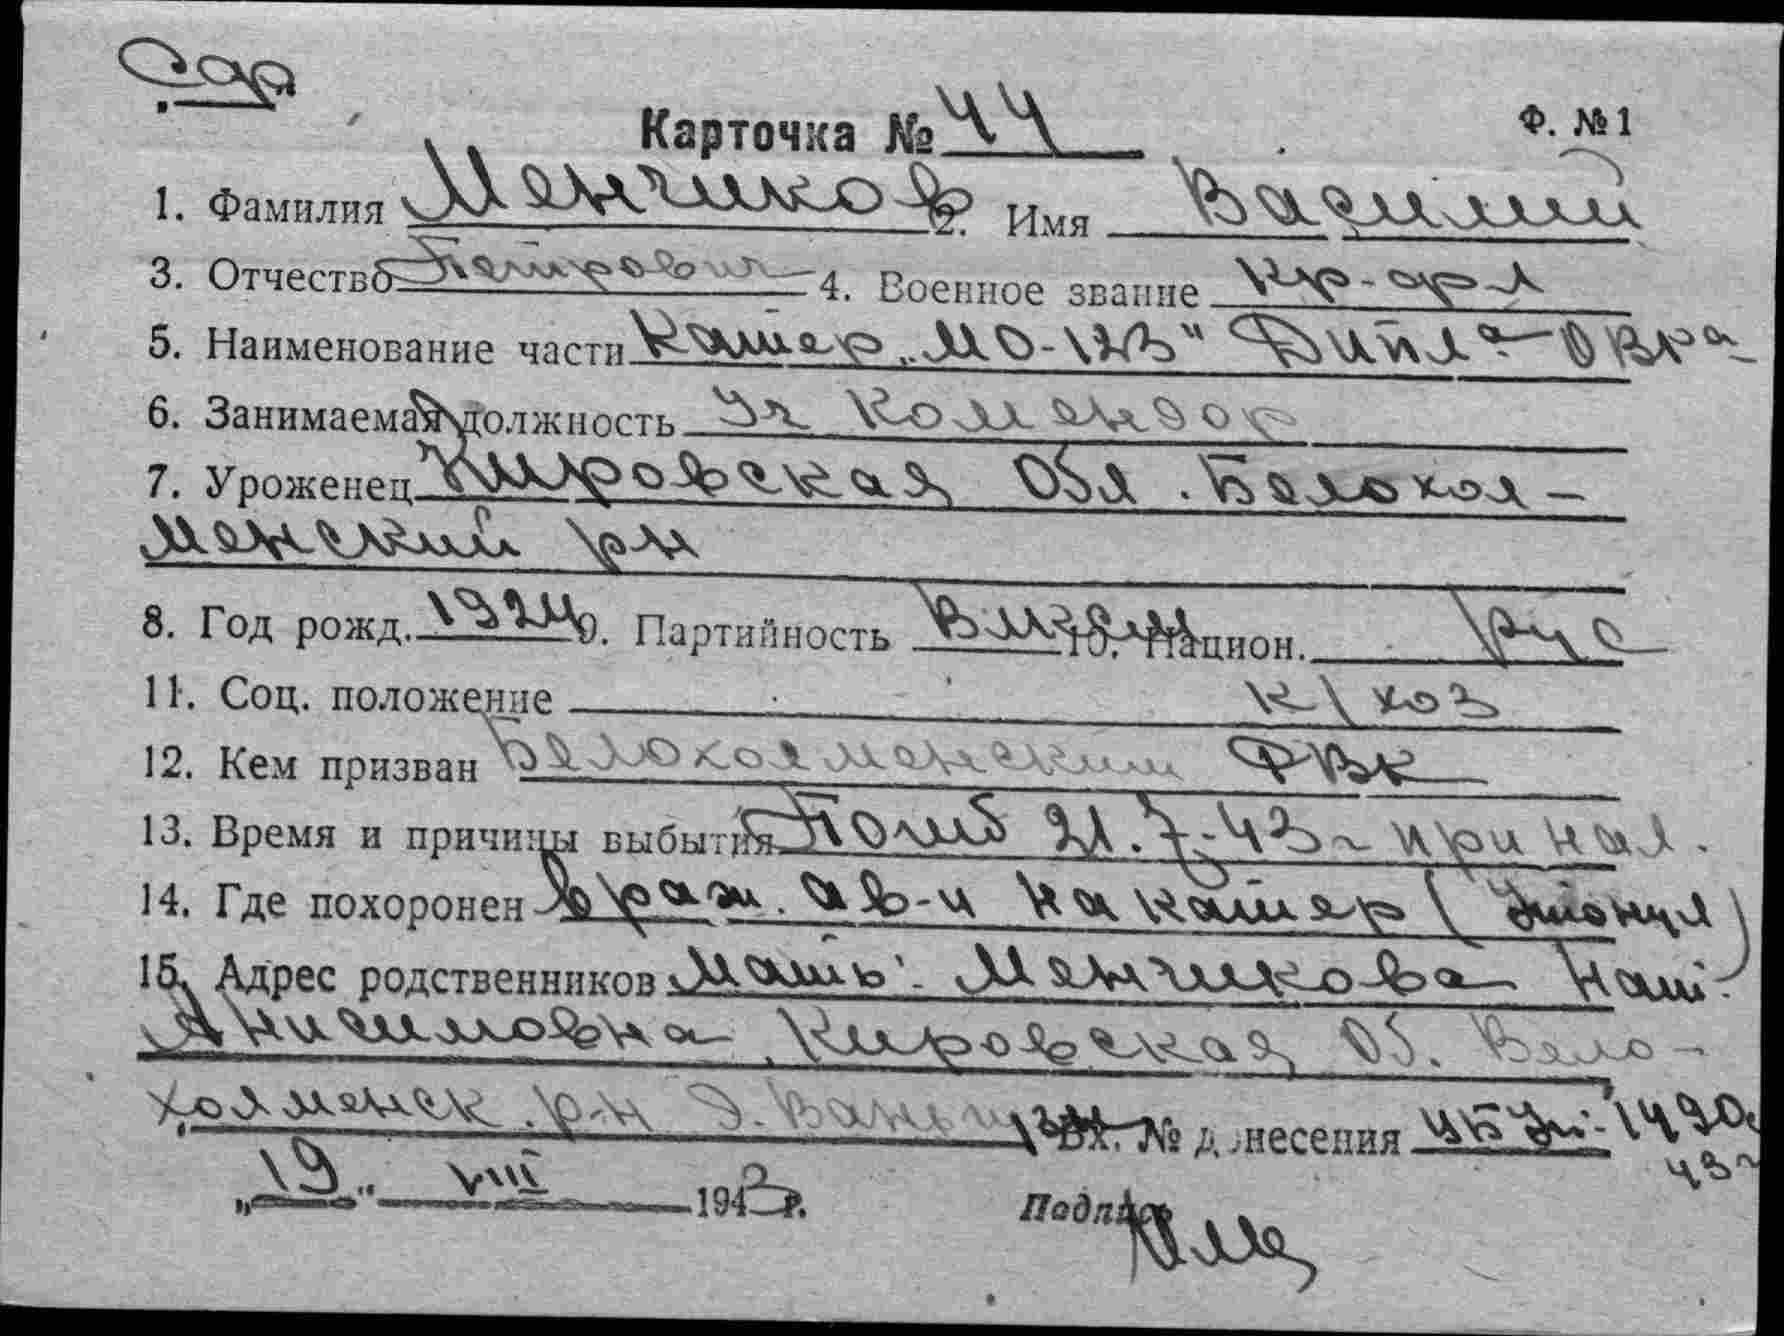 Карточка № 44
Ф. №1
1. Фамилия Менчиков 2. Имя Василий
3. Отчество Петрович 4. Военное звание кр-фл
5. Наименование части Катер „МО-123" ОВРа
6. Занимаемая должность Уч комендор
7. Уроженец Кировская Обл. Белохол-
менский рн
8. Год рожд. 1924 9. Партийность Влксм 10. Национ. рус
11. Соц. положение к/хоз
12. Кем призван Белохолменским РВК
13. Время и причины выбытия Погиб 21.7.43г при нал.
14. Где похоронен враж. ав-и на катер (Утонул)
15. Адрес родственников Мать: Менчикова Нат.
Анисимовна Кировская Об. Бело-
холменск. р-н Д.
Вх. № донесения 1490с
43г
„19" VIII 1943 г.
Подпись